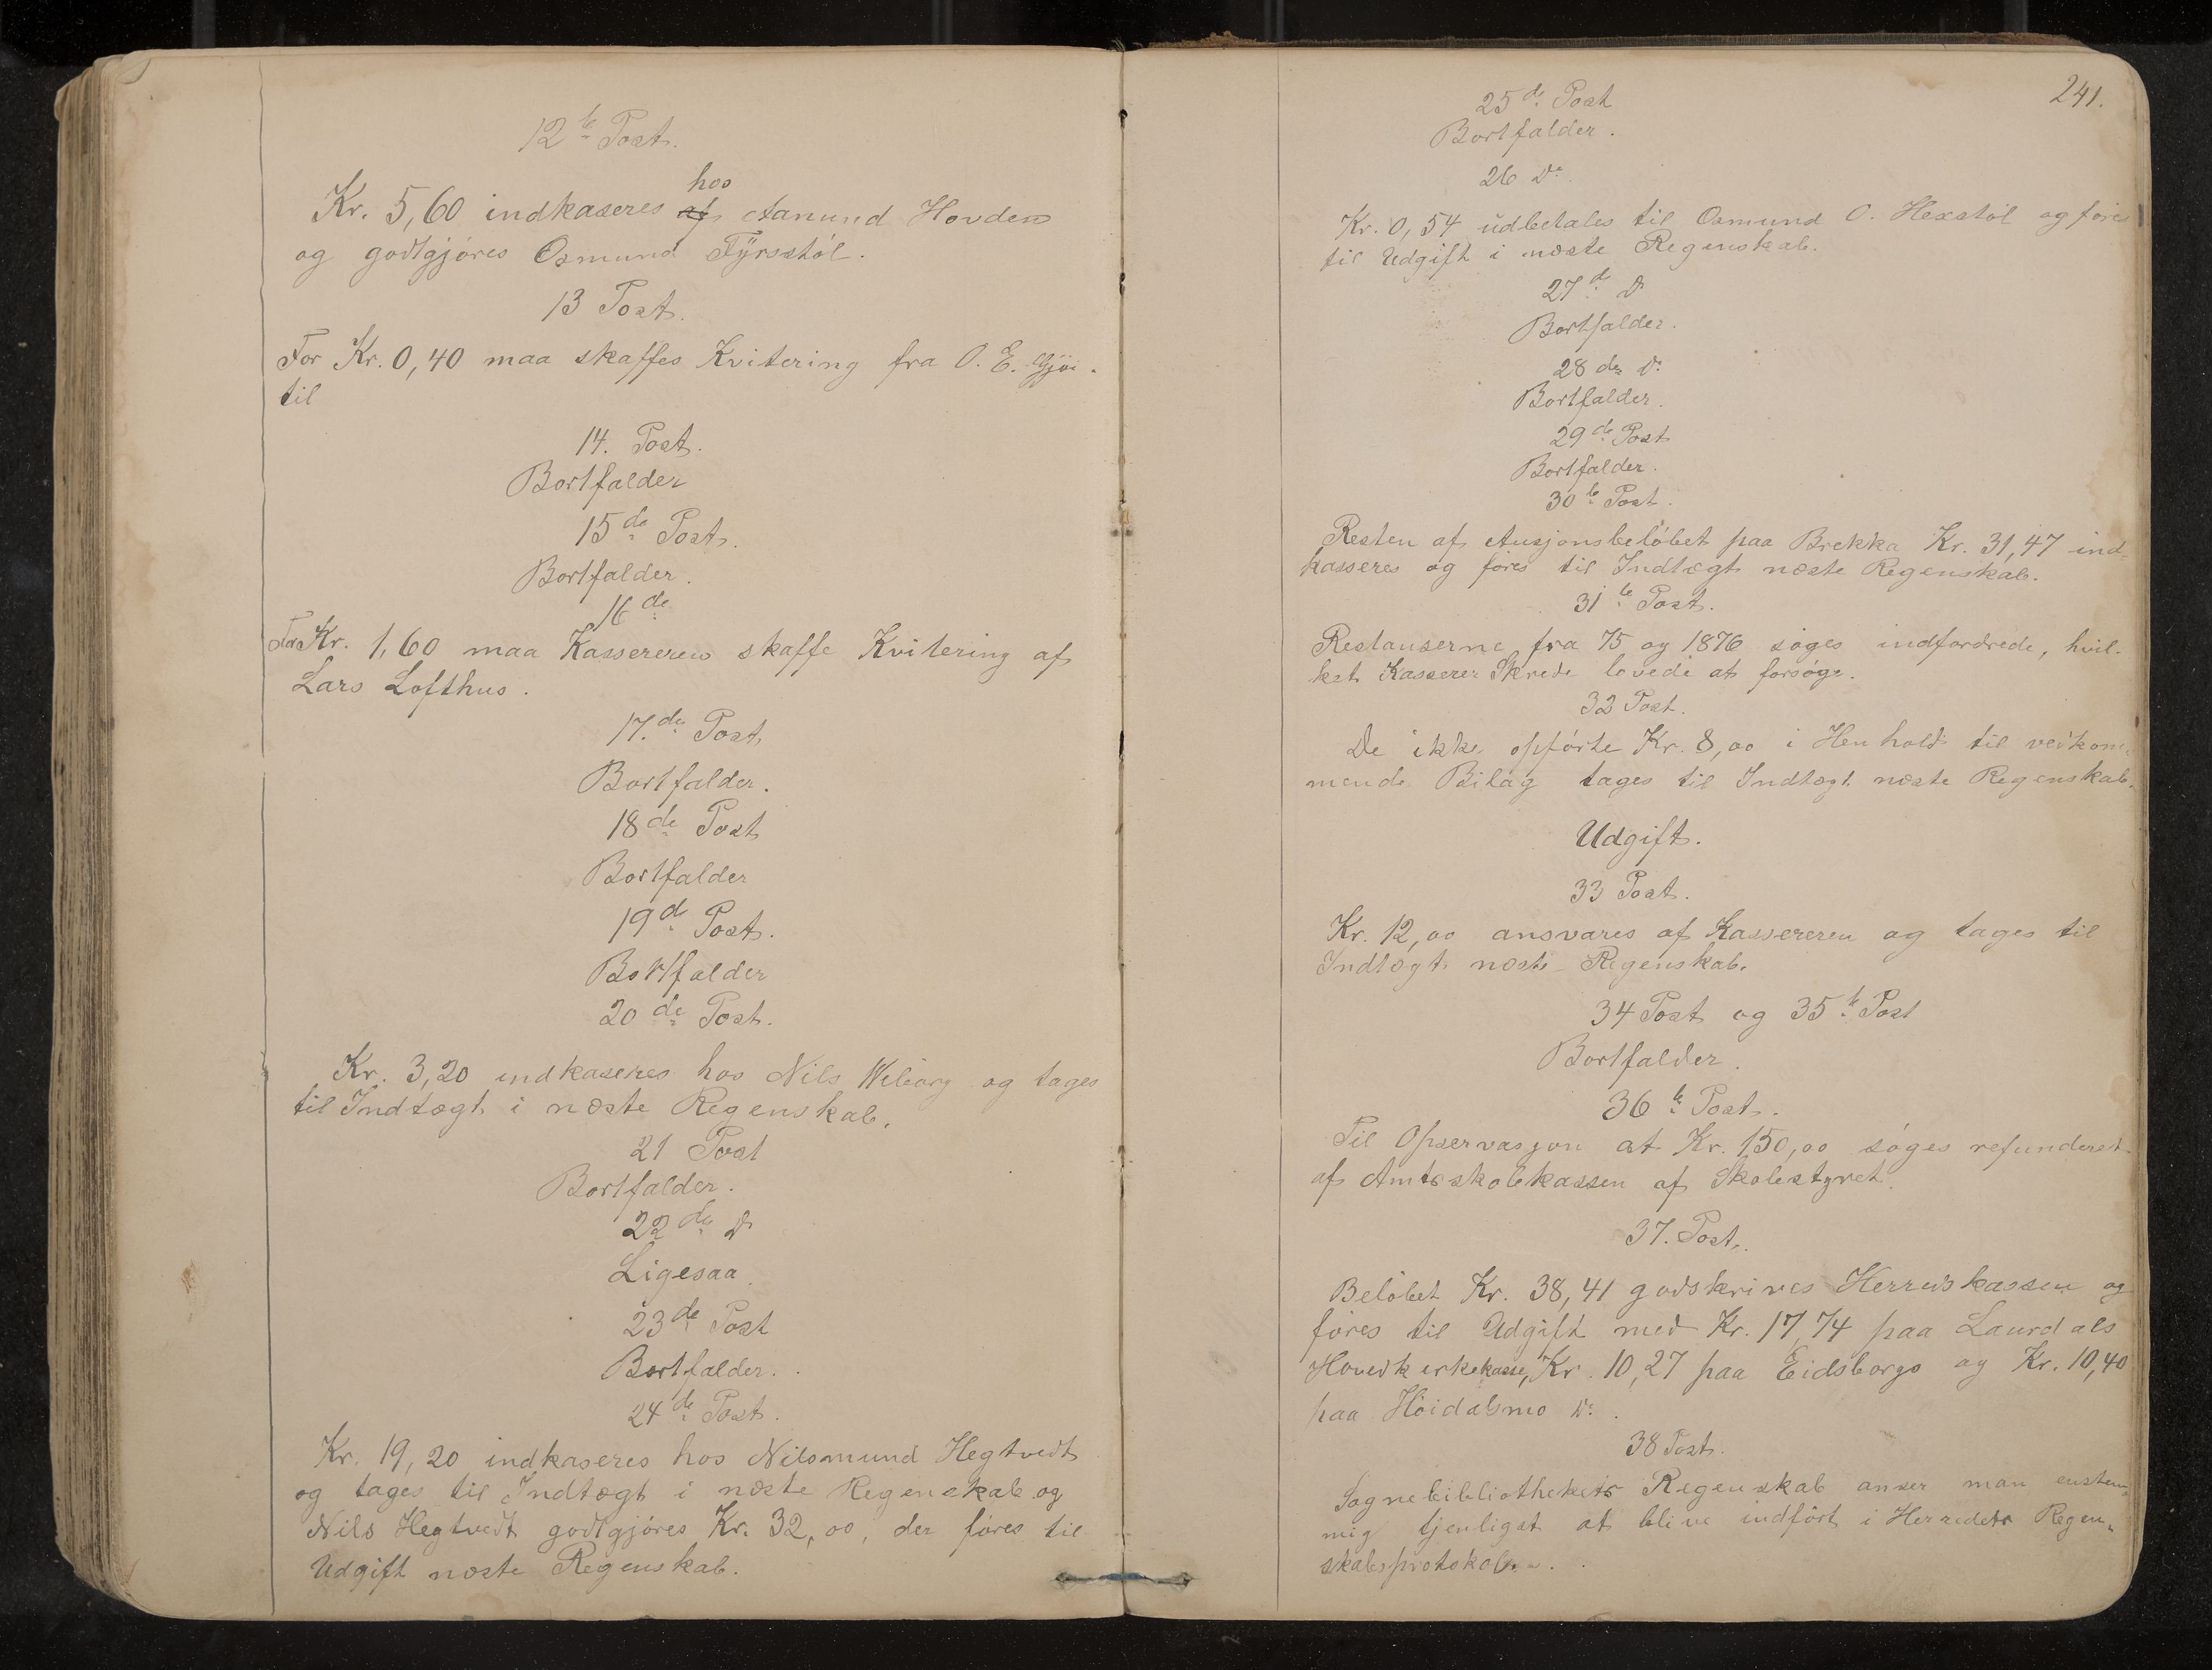 12te Post.
hos
Kr. 5,60 indkaseres af Aanund Hovden
og godtgjöres Osmund Fyrsstöl.
13 Post.
For Kr. 0,40 maa skaffes Kvitering fra O. E.
til
14. Post.
Bortfalder
15de Post.
Bortfalder.
16de
For Kr. 1,60 maa Kassereren skaffe Kvitering af
Lars Lofthus.
17.de Post,
Bortfalder.
18de Post
Bortfalder
19de Post.
Bortfalder
20de Post.
Kr. 3,20 indkaseres hos Nils Wiborg og tages
til Indtægt i næste Regenskab.
21 Post
Bortfalder.
22de D
Ligesaa
23de Post
Bortfalder.
24de Post.
Kr. 19,20 indkaseres hos Nilsmund Hegtvedt
og tages til Indtægt i næste Regenskab og
Nils Hegtvedt godtgjöres Kr. 32,00, der föres til
Udgift næste Regenskab.
241.
25de Post
Bortfalder.
26 Do.
Kr. 0,54 udbetales til Osmund O. Hexstöl og föres
til Udgift i næste Regenskab.
27de D
Bortfalder.
28de Do
Bortfalder.
29de Post
Bortfalder.
30te Post.
Resten af Ausjonsbelöbet paa Brekka Kr. 31,47 ind-
kasseres og föres til Indtægt næste Regenskab.
31te Post.
Restanserne fra 75 og 1876 söges indfordrede, hvil-
ket Kasserer Skrede lovede at forsöge.
32 Post.
De ikke opförte Kr. 8,00 i Henhold til vedkom-
mende Bilag tages til Indtægt næste Regenskab.
Udgift.
33 Post.
Kr. 12,00 ansvares af Kassereren og tages til
Indtægt næste Regenskab.
34 Post og 35te Post
Bortfalder.
36te Post.
Til Opservasjon at Kr. 150,00 söges refunderet
af Amtsskolekassen af Skolestyret.
37. Post.
Belöbet Kr. 38,41 godskrives Herredskassen og
föres til Udgift med Kr. 17,74 paa Laurdals
Hovedkirkekasse, Kr. 10,27 paa Eidsborgs og Kr. 10,40
paa Höidalsmo Do.
38 Post.
Sognebibliothekets Regenskab anser man enstem-
mig tjenligst at blive indfört i Herredets Regen-
skabsprotokol.